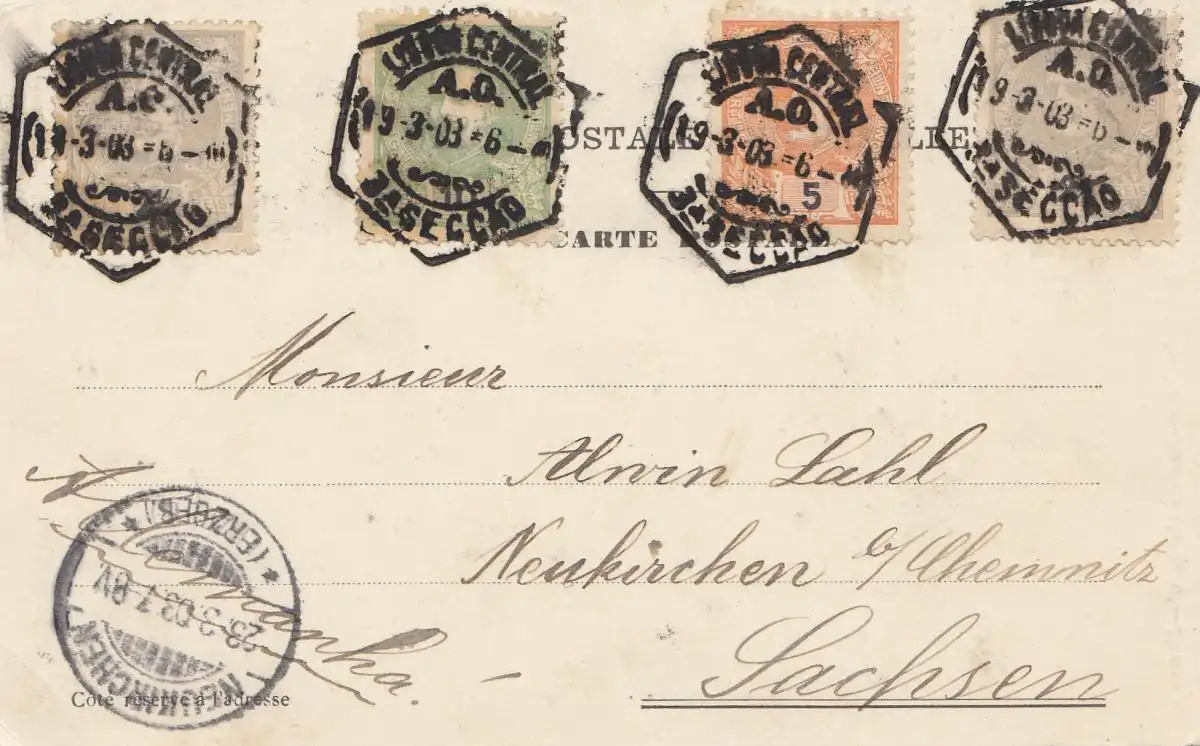 LISBOA CENTRAL
A.O.
19-3-03=6-
3ª SECÇÃO
LISBOA CENTRAL
A.O.
19-3-03=6-
3ª SECÇÃO
LISBOA CENTRAL
A.O.
19-3-03=6-
3ª SECÇÃO
5
LISBOA CENTRAL
A.O.
19-3-03=6-
3ª SECÇÃO
REIS
CARTE POSTALE
Monsieur
Alwin Lahl
Neukirchen b/Chemnitz
Sachsen
Allemanha.
NEUKIRCHEN
23.3.03.7-8V
* (ERZGEB.) *
Côté réservé à l'adresse